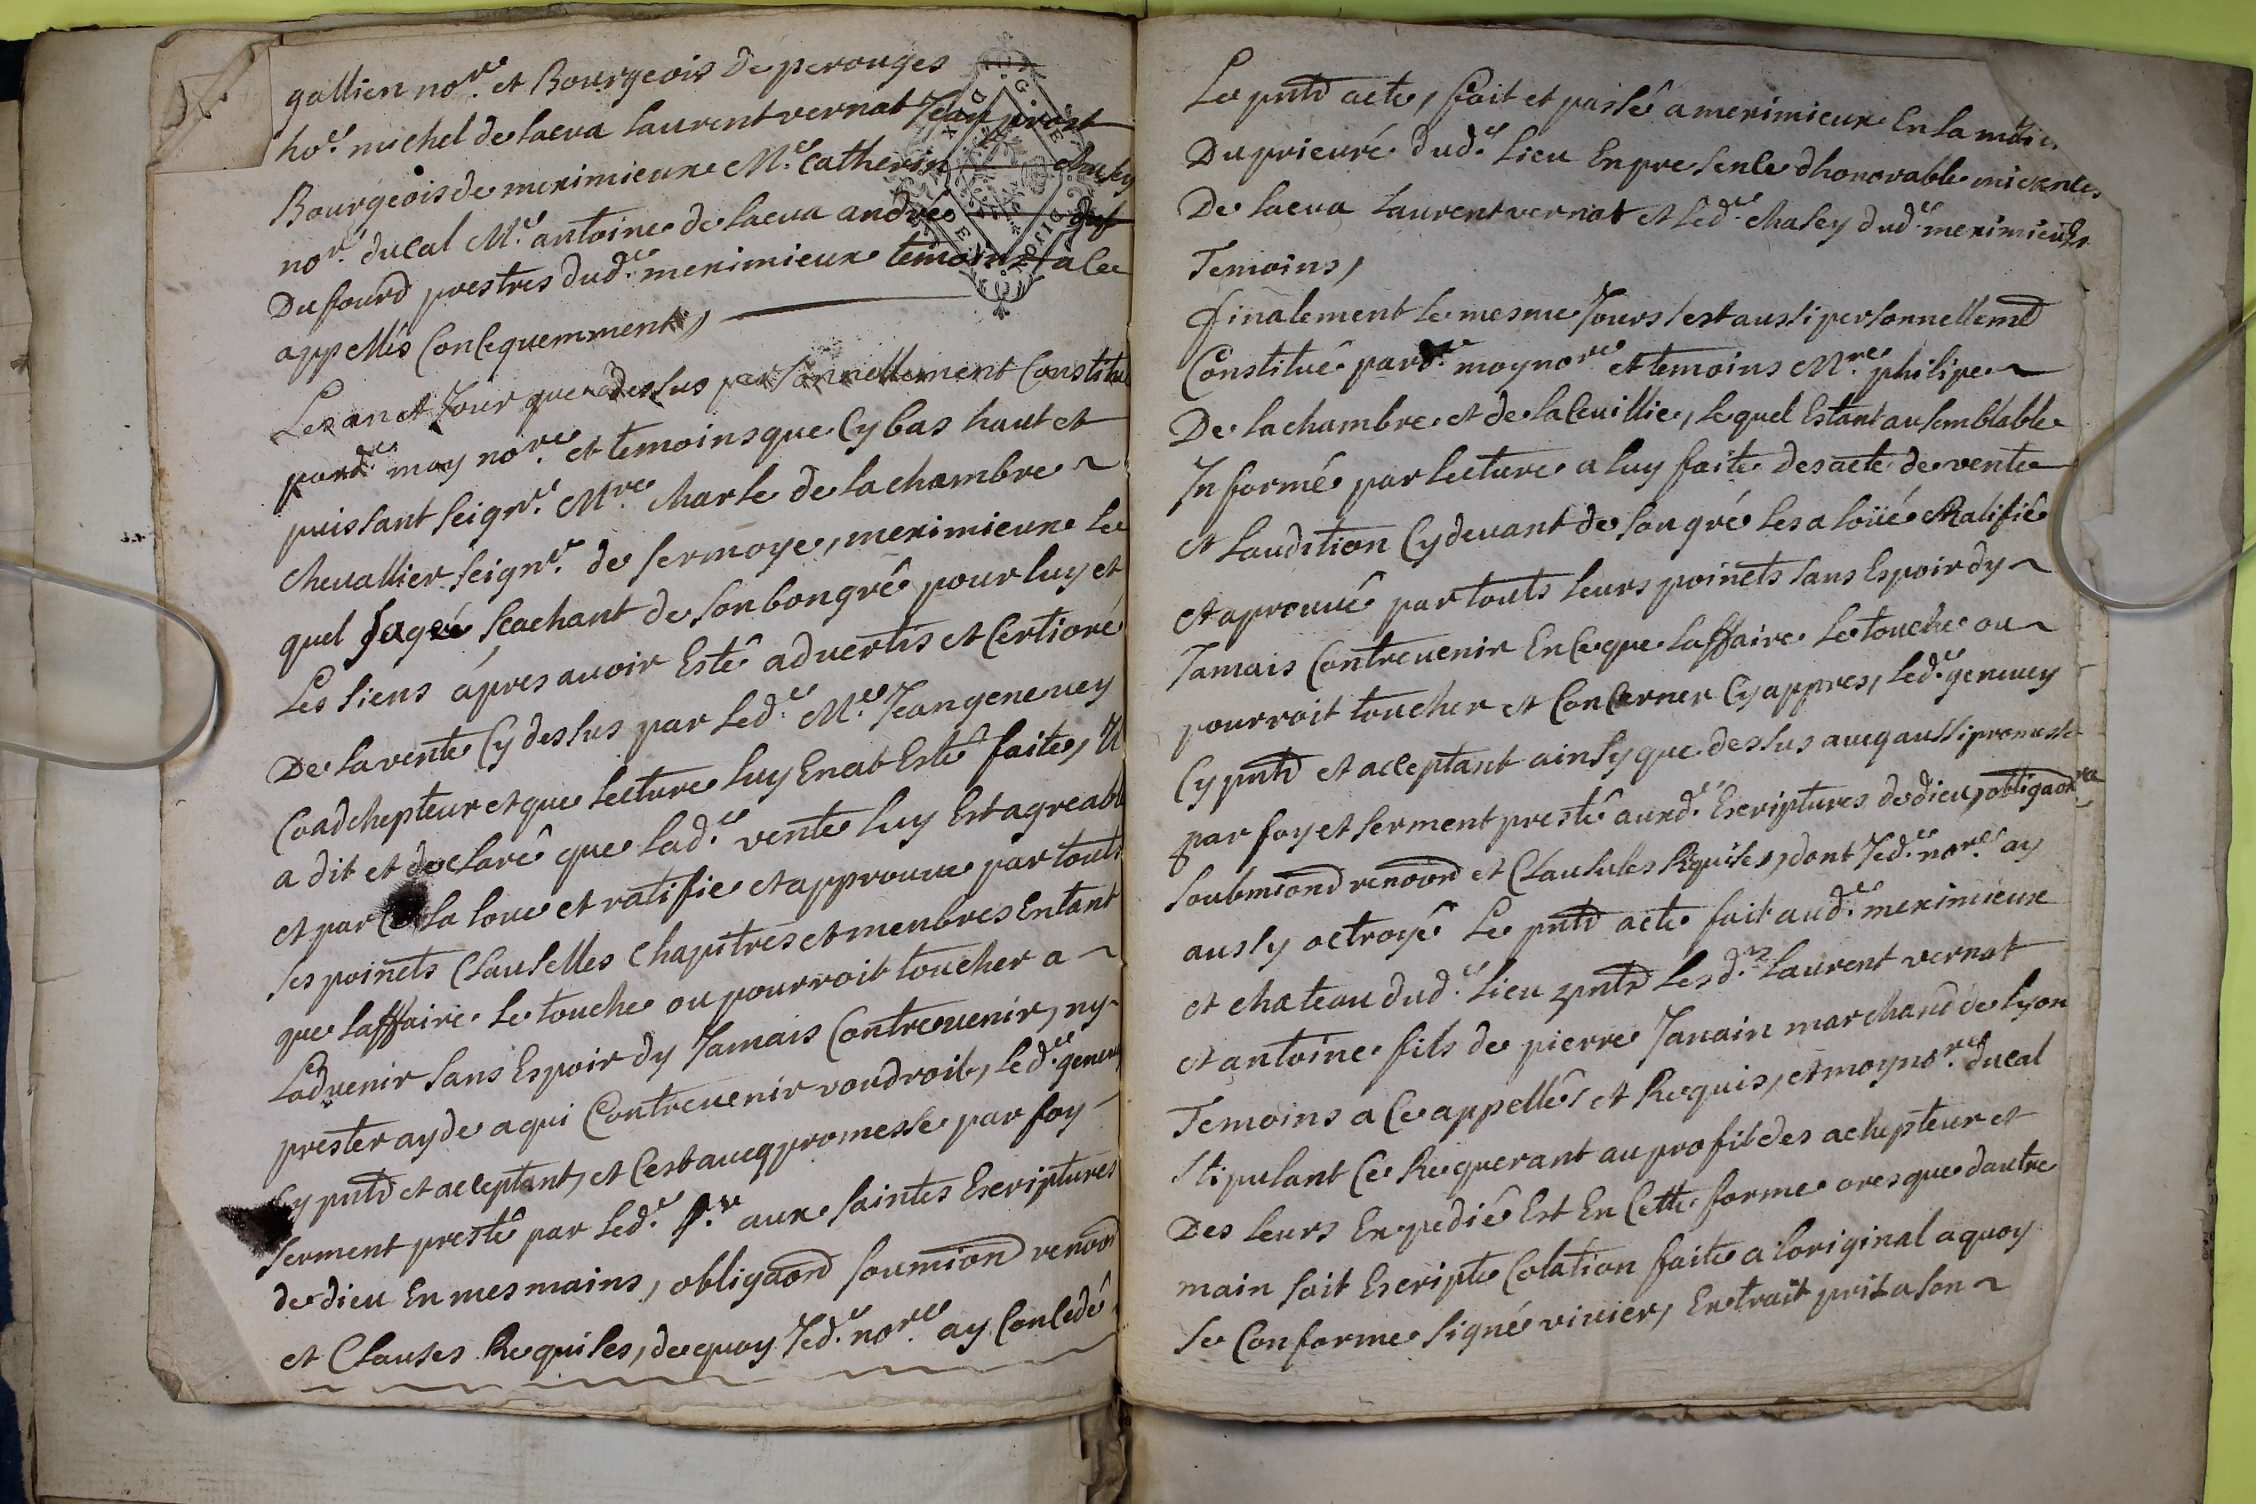 gallien no.re et Bourgeois de perouges
ho.e michel de laeva Laurent vernat Jean prost
Bourgeois de meximieux M.e Catherin Chasey
no.r ducal M.e antoine de laeva andré
Dufourd prestres dud.e meximieux temoins a ce
appellés Concequemment,
Les an et Jour que dessus personnellement Constitué
pard.e moy no.re et temoins que Cy bas haut et
puissant seign.r M.re Charle de la chambre
Chevallier seign.r de sermoye, meximieux le
quel sçachant de son bon gré pour luy et
Les siens ápres avoir Esté advertis et Certioré
De la vente Cy dessus par led.e M.e Jean genevey
Coadchepteur et que lecture luy En at Esté faite, Il
a dit et declaré que lad.e vente luy Est agreable
et par Ce la loue et ratifie et approuve par touts
ses poincts Clauselles Chapitres et menbres Entant
que laffaire le touche ou pourroit toucher a
Ladvenir sans Espoir dy Jamais Contrevenir, ny
prester ayde a qui Contrevenir voudroit, led.e genevey
Cy pntd et acceptant, et C'est avecq promesse par foy
serment presté par led.e s.r aux saintes Escriptures
de dieu En mes mains, obligaond soumiond renoond
et Clauses Requises, de quoy Jed.e no.re ay Concedé
Le pntd acte, fait et passé a meximieux En la
Du prieuré dud.e Lieu En presence d'honorable
De laeva Laurent vernat et led.e Chasey dud.e meximieux
Temoins,
finalement le mesme Jours s'est aussi personnellemd
Constitué pard.e moy no.re et temoins M.re philipe
De la chambre et de la Cuillie, lequel Estant au semblable
Informé par lecture a luy faite des acte de vente
et Laudition Cy devant de son gré les a loüé Ratifié
et aprouvé par touts leurs poincts sans Espoir dy
Jamais Contrevenir En Ce que laffaire le touche ou
pourroit toucher et Concerner Cy appres, led.e genevey
Cy pntd et acceptant ainsy que dessus avecq aussi promesse
par foy et serment presté auxd.e Escriptures de dieu, obligaond
soubmiond renoond et Clausules Requises, dont Jed.e no.re ay
ausy octroyé Le pntd acte fait aud.e meximieux
et chateau dud.e Lieu pntd lesd.s Laurent vernat
et antoine fils de pierre Janain marchand de lyon
Temoins a Ce appellés et Requis, et moy no.re ducal
stipulant Ce Requerant au profit des achepteur et
Des leurs Expedié Est En Cette forme ores que dautre
main soit Escripte Colation faite a loriginal a quoy
se Conforme signé vivier, Extrait prit a son